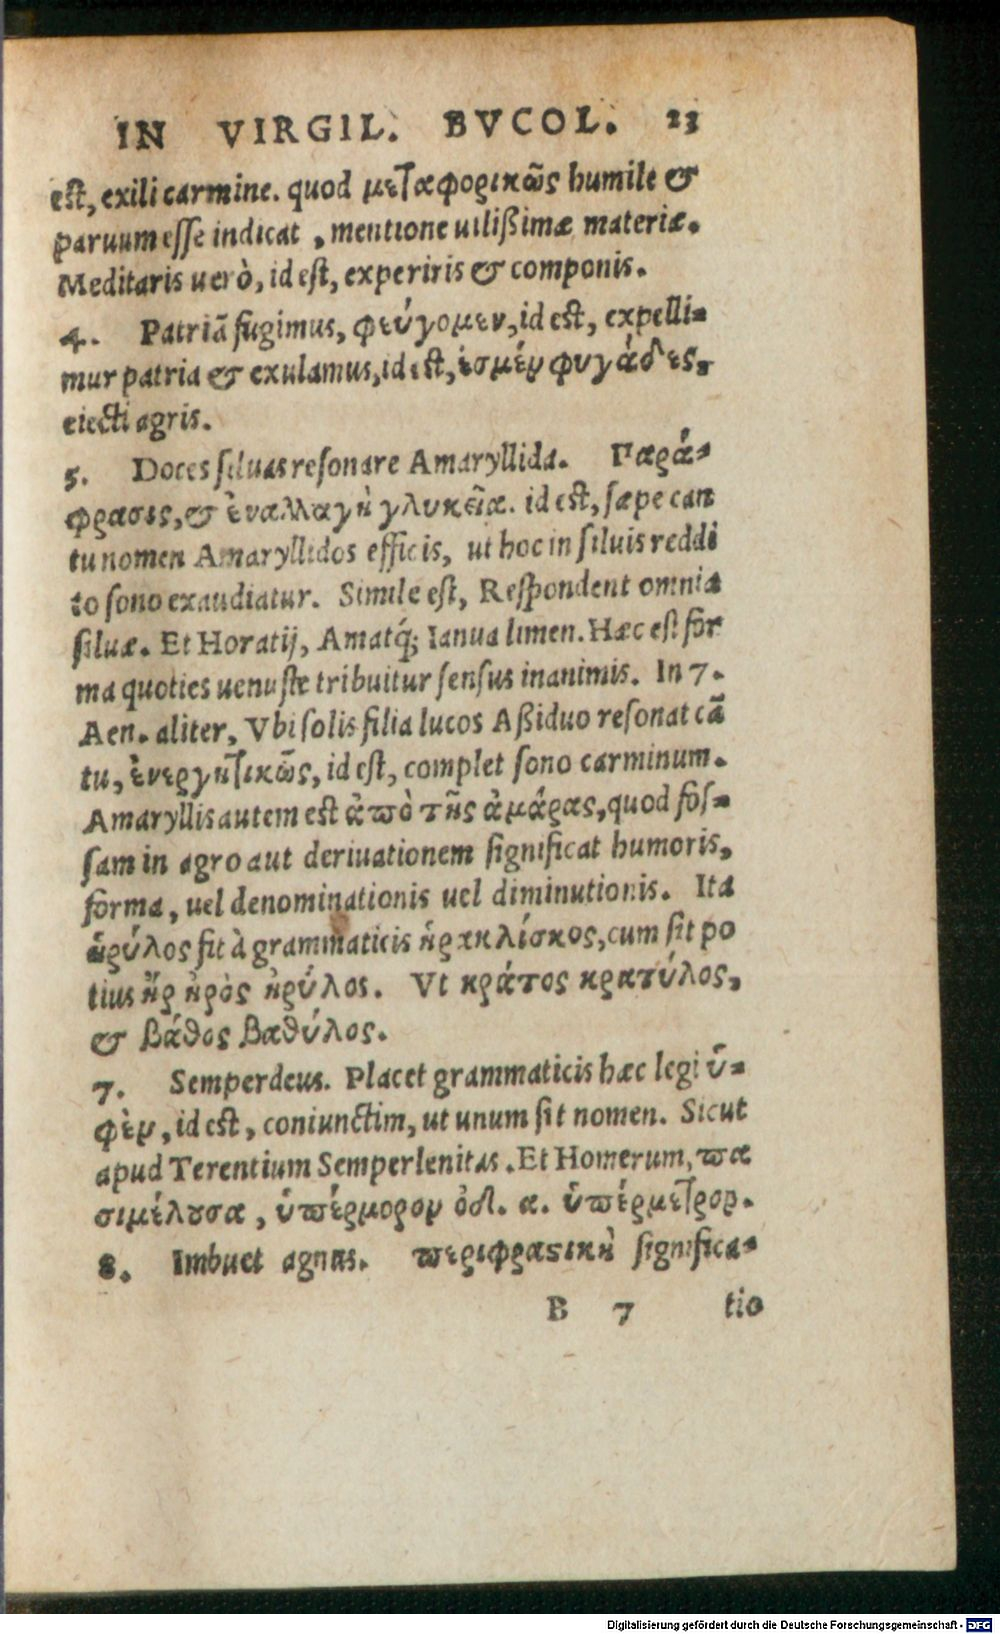 IN VIRGIL. BVCOL. 23
est, exili carmine. quod μεταφορικῶς humile &
paruum esse indicat, mentione uilißimæ materiæ.
Meditaris uerò, id est, experiris & componis.
4. Patriã fugimus, φεύγομεν, id est, expelli-
mur patria & exulamus, id est, ἐσμὲν φυγάδες,
eiecti agris.
5. Doces siluas resonare Amaryllida. Παρά-
φρασις, & ἐναλλαγὴ γλυκεῖα. id est, sæpe can
tu nomen Amaryllidos efficis, ut hoc in siluis reddi
to sono exaudiatur. Simile est, Respondent omnia
siluæ. Et Horatij, Amatq́; Ianua limen. Hæc est for
ma quoties uenuste tribuitur sensus inanimis. In 7.
Aen. aliter, Vbi solis filia lucos Aßiduo resonat cã
tu, ἐνεργητικῶς, id est, complet sono carminum.
Amaryllis autem est ἀπὸ τῆς ἀμάρας, quod fos-
sam in agro aut deriuationem significat humoris,
forma, uel denominationis uel diminutionis. Ita
ἡρύλος fit à grammaticis ἡρακλίσκος, cum sit po
tius ἦρ ἠρὸς ἠρύλος. Vt κράτος κρατύλος,
& βάθος βαθύλος.
7. Semperdeus. Placet grammaticis hæc legi ὑ-
φὲν, id est, coniunctim, ut unum sit nomen. Sicut
apud Terentium Semperlenitas. Et Homerum, πα
σιμέλουσα, ὑπέρμορον ὀδ. α. ὑπέρμετρον.
8. Imbuet agnus. περιφραστικὴ significa-
B 7 tio
Digitalisierung gefördert durch die Deutsche Forschungsgemeinschaft - DFG